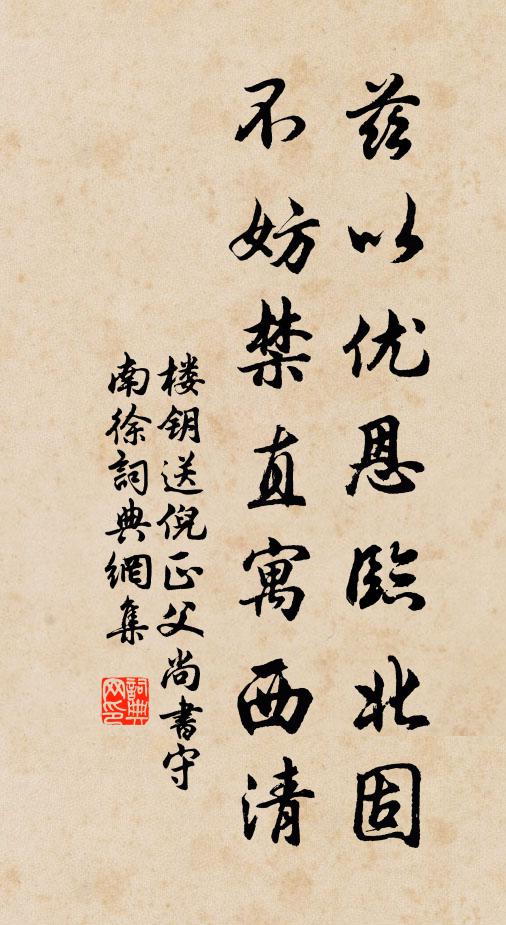 兹以优恩臨北固
不妨禁直寓西清
楼钥送倪正父尚書守
南徐詞典網集
詞典网印